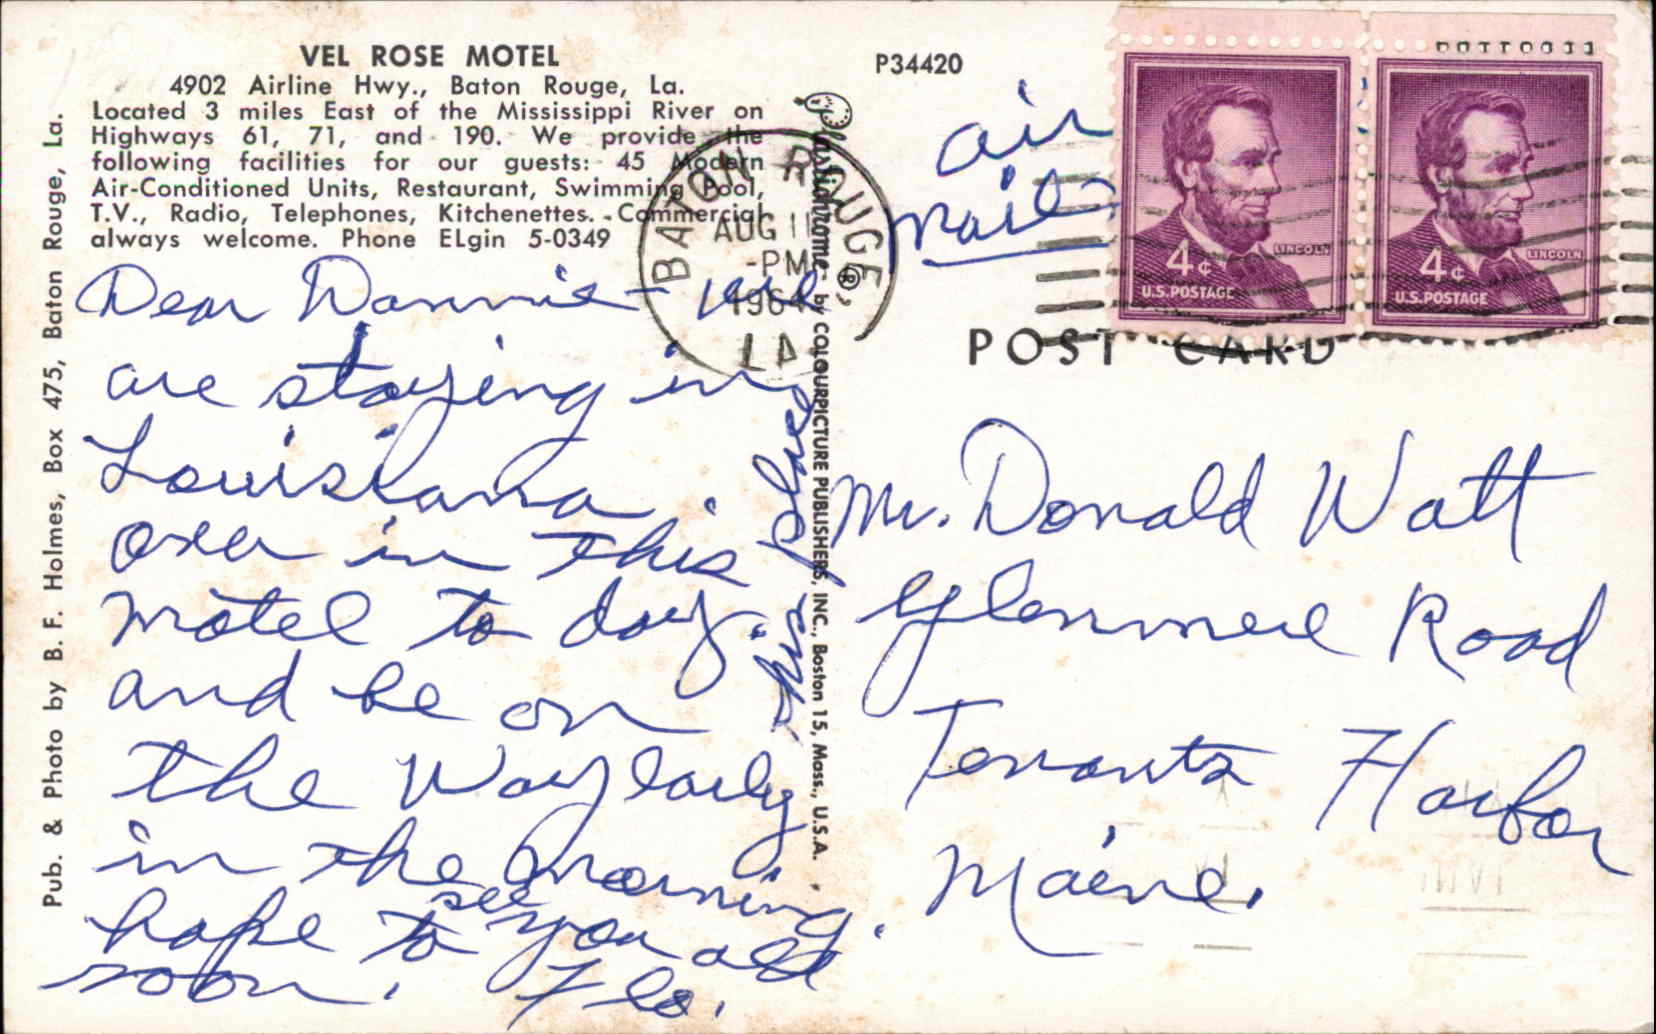 VEL ROSE MOTEL
4902 Airline Hwy., Baton Rouge, La.
Located 3 miles East of the Mississippi River on
Highways 61, 71, and 190. We provide the
following facilities for our guests: 45 Modern
Air-Conditioned Units, Restaurant, Swimming Pool,
T.V., Radio, Telephones, Kitchenettes. Commercial
always welcome. Phone ELgin 5-0349
Pub. & Photo by B. F. Holmes, Box 475, Baton Rouge, La.
Dear Donnie - we
are staying in
Louisiana
over in this
motel to day.
and be on
the Way early
in the morning.
hope to see you all
soon. Flo.
Plastichrome ® by COLOURPICTURE PUBLISHERS, INC., Boston 15, Mass., U.S.A.
P34420
BATON ROUGE,
AUG 11
-PM
1964
LA
air
mail
4¢
LINCOLN
U.S. POSTAGE
4¢
LINCOLN
U.S. POSTAGE
POST CARD
Mr. Donald Watt
Glenmere Road
Tenants Harbor
Maine.